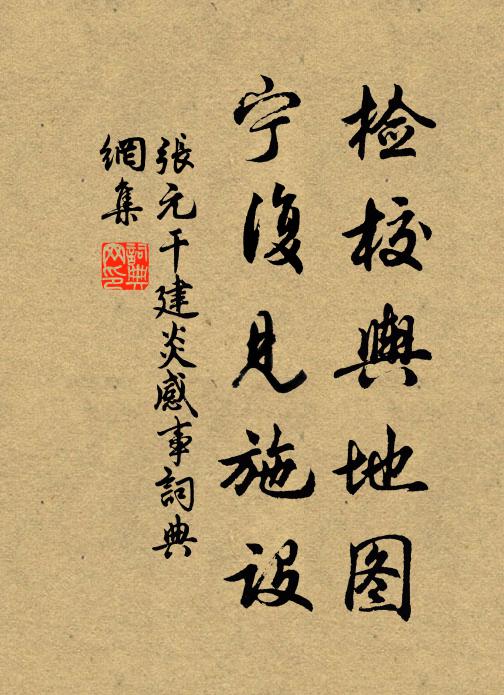 检校舆地图
宁复见施设
張元干建炎感事詞典
網集
詞典
网印